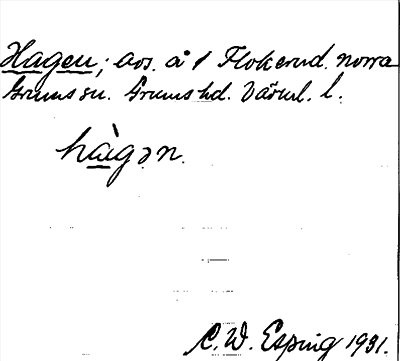 Hagen; avs. å 1 Flokerud. norra
Grums sn. Grums hd. Värml. l.
hàgən.
C. W. Esping 1931.